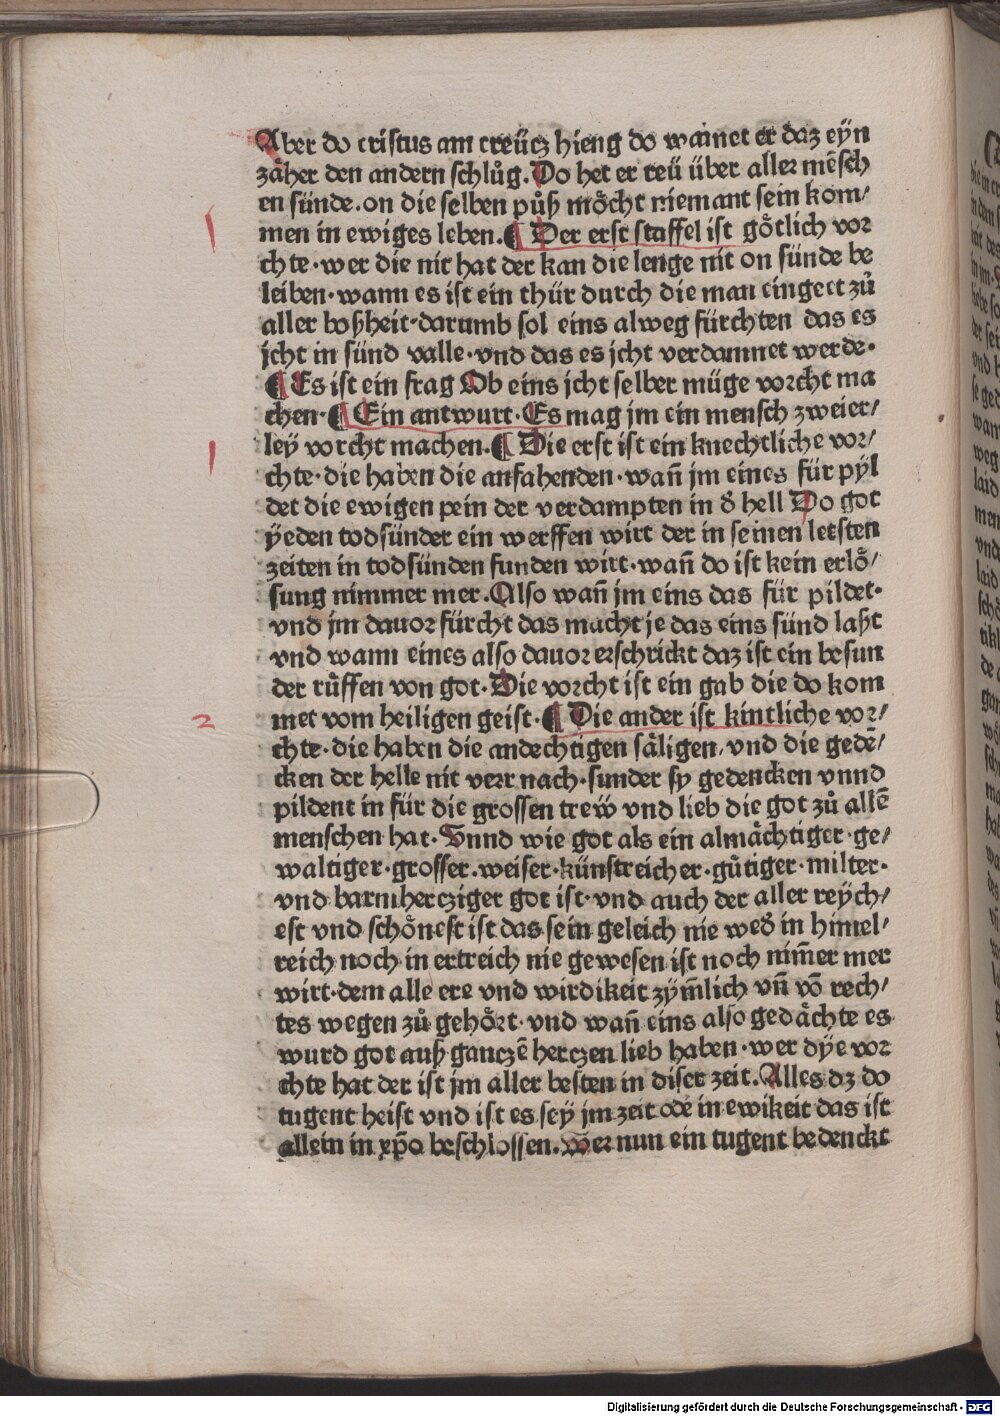 Aber do cristus am creücz hieng do wainet er daz eyn
zäher den andern schlůg. Do het er reü über aller mēsch
en sünde. on die selben půß möcht niemant sein kom/
men in ewiges leben. ¶ Der erst staffel ist götlich vor
chte. wer die nit hat der kan die lenge nit on sünde be
leiben. wann es ist ein thür durch die man eingeet zů
aller boßheit. darumb sol eins alweg fürchten das es
jcht in sünd valle. vnd das es jcht verdamnet werde.
¶ Es ist ein frag Ob eins jcht selber müge vorcht ma
chen. ¶ Ein antwurt. Es mag jm ein mensch zweier/
ley vorcht machen. ¶ Die erst ist ein knechtliche vor/
chte. die haben die anfahenden. wañ jm eines für pyl
det die ewigen pein der verdampten in d̄ hell Do got
ÿeden todsünder ein werffen wirt der in seinen letsten
zeiten in todsünden funden wirt. wañ do ist kein erlö/
sung nimmer mer. Also wañ jm eins das für pildet.
vnd jm dauor fürcht das macht je das eins sünd laßt
vnd wann eines also dauor erschrickt daz ist ein besun
der rüffen von got. Die vorcht ist ein gab die do kom
met vom heiligen geist. ¶ Die ander ist kintliche vor/
chte. die haben die andechtigen säligen. vnd die gedē/
cken der helle nit verr nach. sunder sy gedencken vnnd
pildent in für die grossen trew vnd lieb die got zů allē
menschen hat. Vnnd wie got als ein almächtiger. ge/
waltiger. grosser. weiser. künstreicher. gütiger. milter.
vnd barmhercziger got ist. vnd auch der aller reych/
est vnd schönest ist das sein geleich nie wed̄ in himel/
reich noch in ertreich nie gewesen ist noch nim̄er mer
wirt. dem alle ere vnd wirdikeit zym̄lich vñ vō rech/
tes wegen zů gehört. vnd wañ eins also gedächte es
wurd got auß ganczē herczen lieb haben. wer dÿe vor
chte hat der ist jm aller besten in diser zeit. Alles dz do
tugent heist vnd ist es sey jm zeit odē in ewikeit das ist
allein in xp̄o beschlossen. Wer nun ein tugent bedenckt
Digitalisierung gefördert durch die Deutsche Forschungsgemeinschaft - DFG